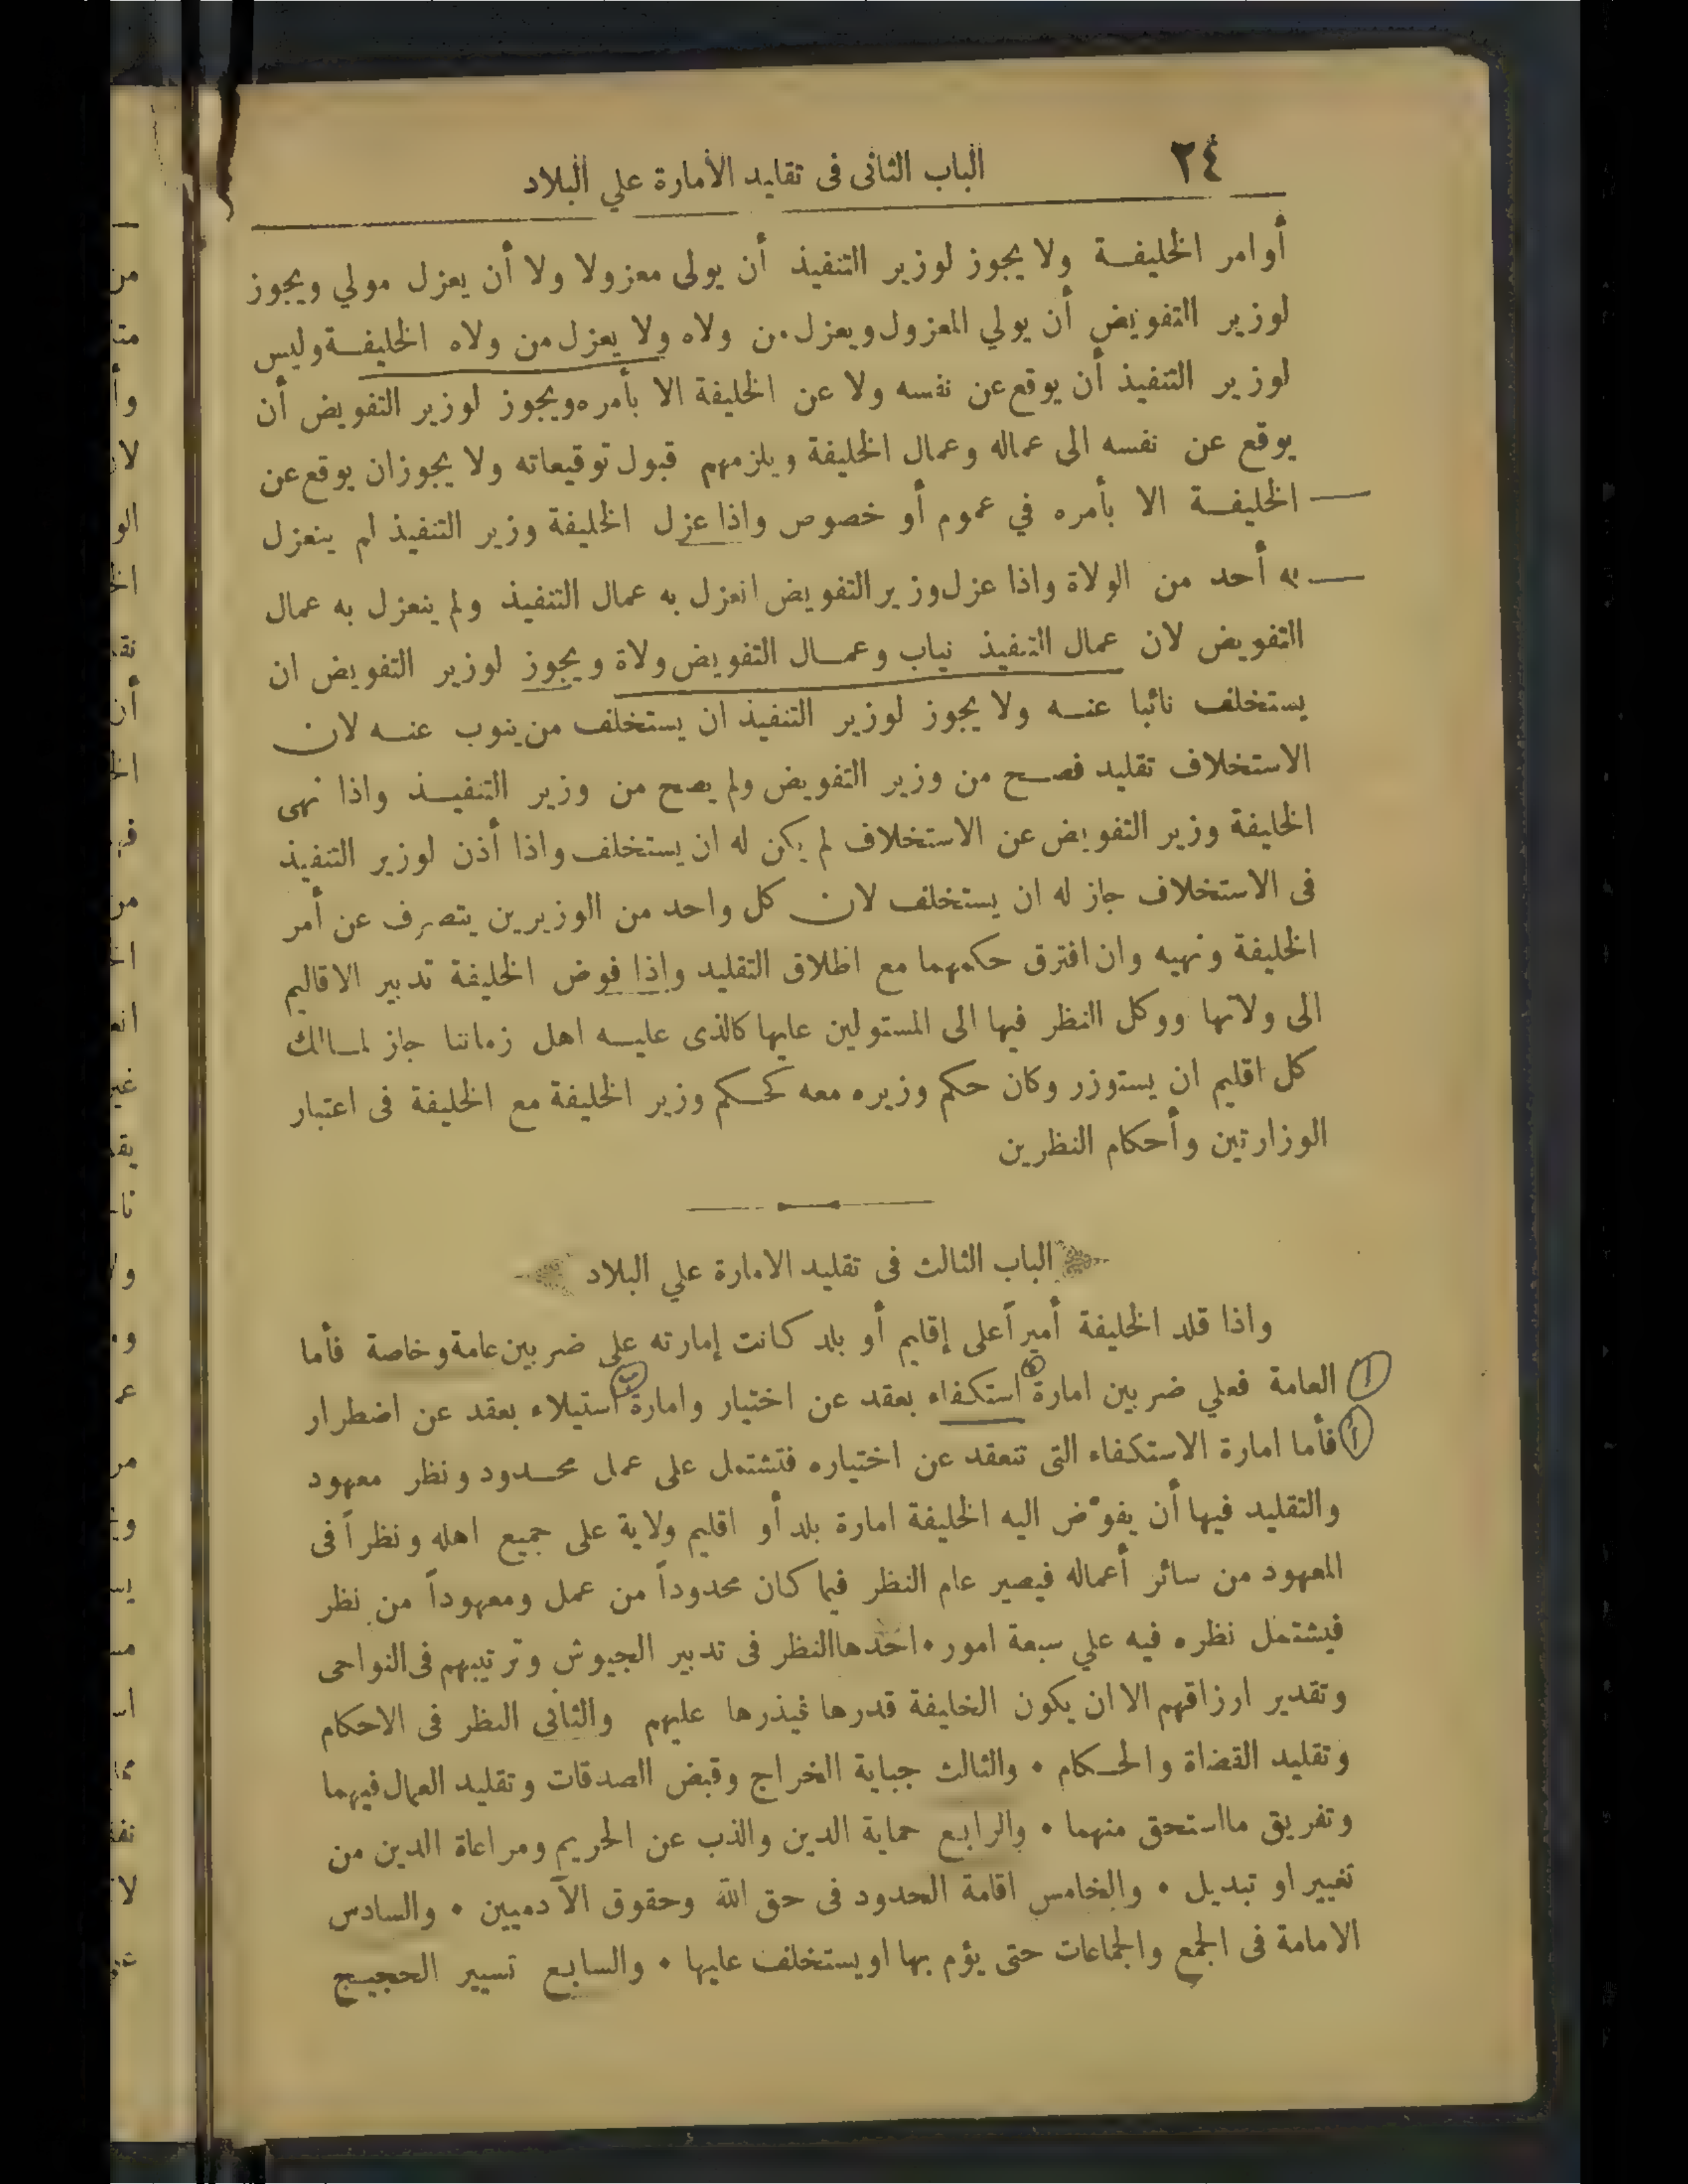 ٢٤
الباب الثانى فى تقليد الأمارة علي البلاد
أوامر الخليفة ولا يجوز لوزير التنفيذ أن يولى معزولا ولا أن يعزل مولي ويجوز
لوزير التفويض أن يولي المعزول ويعزل من ولاه ولا يعزل من ولاه الخليفة وليس
لوزير التنفيذ أن يوقع عن نفسه ولا عن الخليفة الا بأمره ويجوز لوزير التفويض أن
يوقع عن نفسه الى عماله وعمال الخليفة ويلزمهم قبول توقيعاته ولا يجوز ان يوقع عن
الخليفة الا بأمره في عموم أو خصوص واذا عزل الخليفة وزير التنفيذ لم ينعزل
به أحد من الولاة واذا عزل وزير التفويض انعزل به عمال التنفيذ ولم ينعزل به عمال
التفويض لان عمال التنفيذ نياب وعمال التفويض ولاة ويجوز لوزير التفويض ان
يستخلف نائبا عنه ولا يجوز لوزير التنفيذ ان يستخلف من ينوب عنه لان
الاستخلاف تقليد فصح من وزير التفويض ولم يصح من وزير التنفيذ واذا نهى
الخليفة وزير التفويض عن الاستخلاف لم يكن له ان يستخلف واذا أذن لوزير التنفيذ
فى الاستخلاف جاز له ان يستخلف لان كل واحد من الوزيرين يتصرف عن أمر
الخليفة ونهيه وان افترق حكمهما مع اطلاق التقليد واذا فوض الخليفة تدبير الاقاليم
الى ولاتها ووكل النظر فيها الى المستولين عليها كالذى عليه اهل زماننا جاز لمالك
كل اقليم ان يستوزر وكان حكم وزيره معه كحكم وزير الخليفة مع الخليفة فى اعتبار
الوزارتين وأحكام النظرين
الباب الثالث فى تقليد الامارة علي البلاد
واذا قلد الخليفة أميراً على إقليم أو بلد كانت إمارته على ضربين عامة وخاصة فأما
العامة فعلي ضربين امارة استكفاء بعقد عن اختيار وامارة استيلاء بعقد عن اضطرار
فأما امارة الاستكفاء التى تنعقد عن اختياره فتشتمل على عمل محدود ونظر معهود
والتقليد فيها أن يفوّض اليه الخليفة امارة بلد أو اقليم ولاية على جميع اهله ونظراً فى
المعهود من سائر أعماله فيصير عام النظر فيما كان محدوداً من عمل ومعهوداً من نظر
فيشتمل نظره فيه علي سبعة امور • احدها النظر فى تدبير الجيوش وترتيبهم فى النواحى
وتقدير ارزاقهم الا ان يكون الخليفة قدرها فيذرها عليهم والثانى النظر فى الاحكام
وتقليد القضاة والحكام • والثالث جباية الخراج وقبض الصدقات وتقليد العمال فيهما
وتفريق ما استحق منهما • والرابع حماية الدين والذب عن الحريم ومراعاة الدين من
تغيير او تبديل • والخامس اقامة الحدود فى حق الله وحقوق الآدميين • والسادس
الامامة فى الجمع والجماعات حتى يؤم بها او يستخلف عليها • والسابع تسيير الحجيج